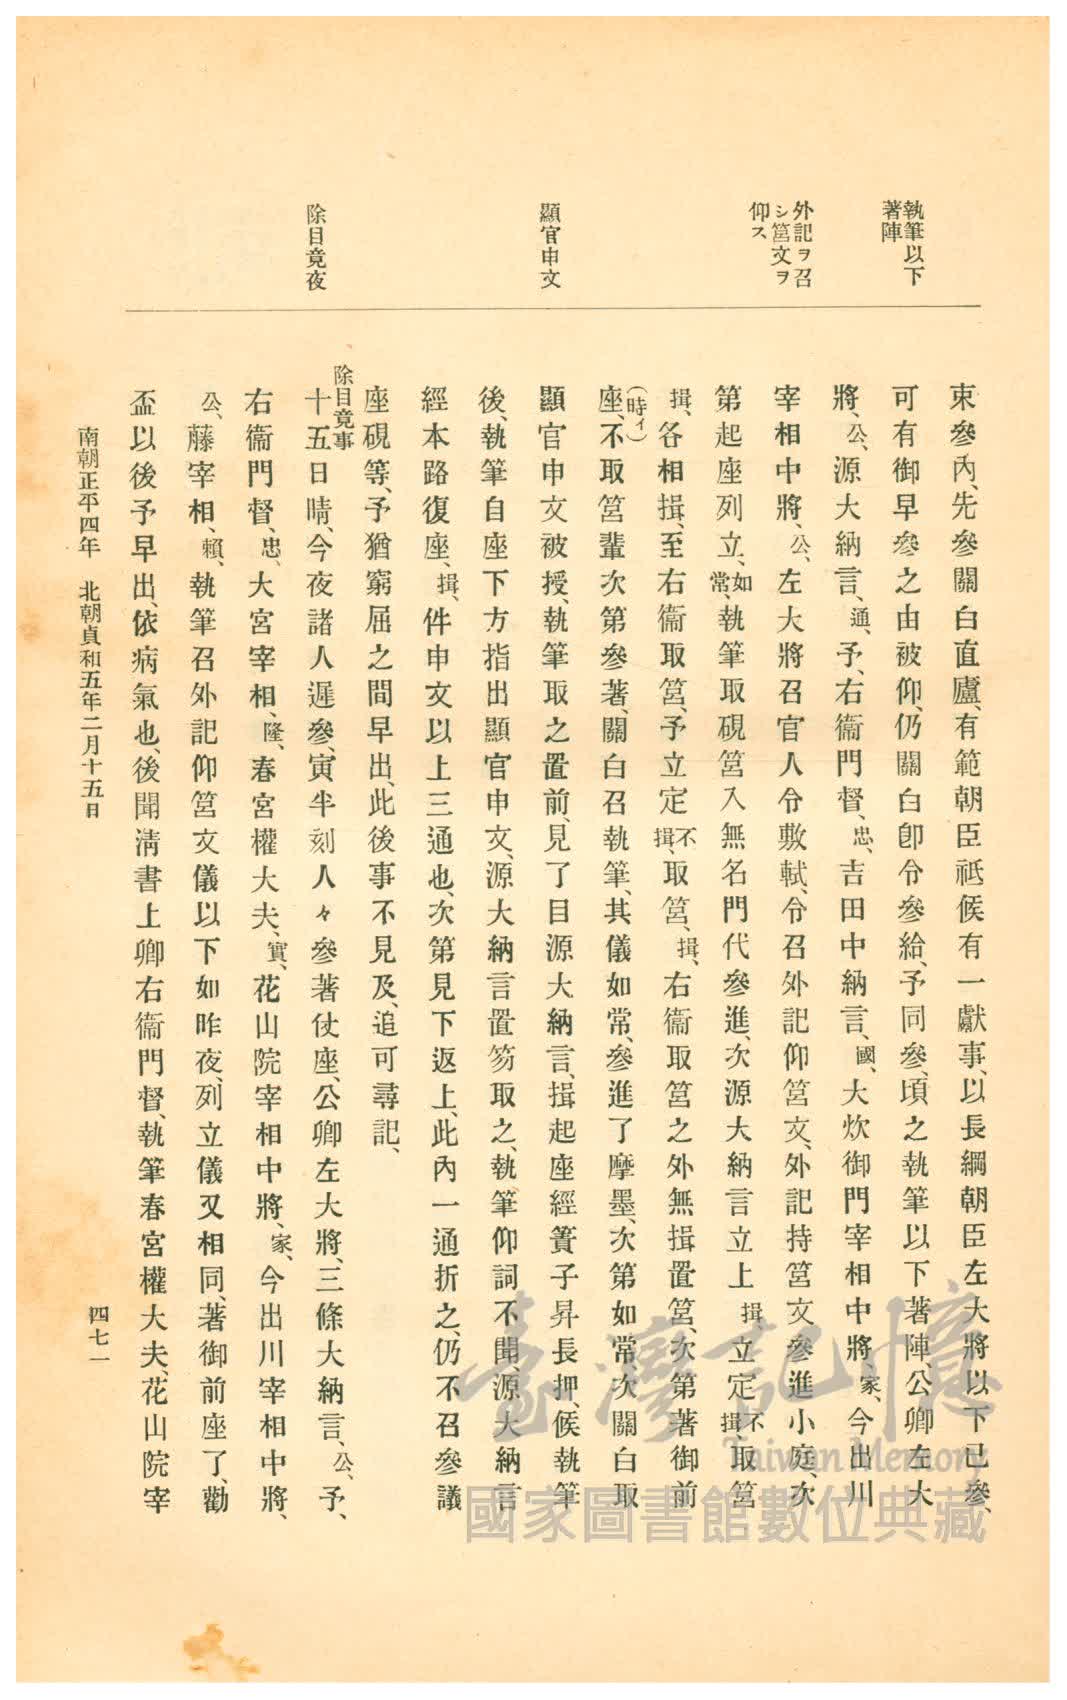 執筆以下
著陣
外記ヲ召
シ筥文ヲ
仰ス
顯官申文
除目竟夜
束參內、先參關白直廬、有範朝臣祗候有一獻事、以長綱朝臣左大將以下已參、
可有御早參之由被仰、仍關白卽令參給、予同參、頃之執筆以下著陣、公卿左大
將、公、源大納言、通、予、右衞門督、忠、吉田中納言、國、大炊御門宰相中將、家、今出川
宰相中將、公、左大將召官人令敷軾、令召外記仰筥文、外記持筥文參進小庭、次
第起座列立、如常、執筆取硯筥入無名門代參進、次源大納言立上揖、立定不揖、取筥
揖、各相揖、至右衞取筥、予立定不揖、取筥、揖、右衞取筥之外無揖置筥、次第著御前
座、(時イ)不取筥輩次第參著、關白召執筆、其儀如常、參進了摩墨、次第如常、次關白取
顯官申文被授、執筆取之置前、見了目源大納言、揖起座經簀子昇長押、候執筆
後、執筆自座下方指出顯官申文、源大納言置笏取之、執筆仰詞不聞、源大納言
經本路復座、揖、件申文以上三通也、次第見下返上、此內一通折之、仍不召參議
座硯等、予猶窮屈之間早出、此後事不見及、追可尋記、
除目竟事
十五日晴、今夜諸人遲參、寅半刻人々參著仗座、公卿左大將、三條大納言、公、予、
右衞門督、忠、大宮宰相、隆、春宮權大夫、實、花山院宰相中將、家、今出川宰相中將、
公、藤宰相、賴、執筆召外記仰筥文儀以下如昨夜、列立儀又相同、著御前座了、勸
盃以後予早出、依病氣也、後聞淸書上卿右衞門督、執筆春宮權大夫、花山院宰
南朝正平四年　北朝貞和五年二月十五日
四七一
臺灣記憶
Taiwan Memory
國家圖書館數位典藏